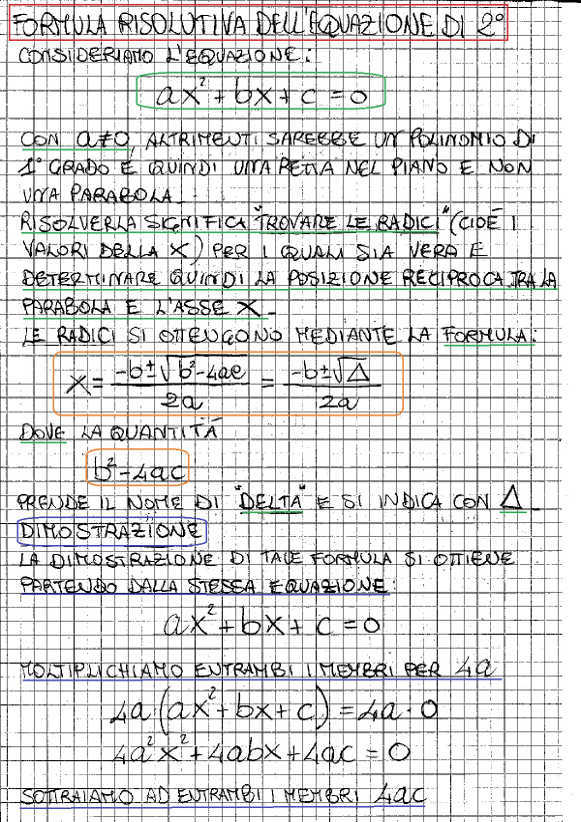 FORMULA RISOLUTIVA DELL'EQUAZIONE DI 2°
CONSIDERIAMO L'EQUAZIONE:
ax²+bx+c=0
CON a≠0, ALTRIMENTI SAREBBE UN POLINOMIO DI
1° GRADO E QUINDI UNA RETTA NEL PIANO E NON
UNA PARABOLA.
RISOLVERLA SIGNIFICA "TROVARE LE RADICI" (CIOÈ I
VALORI DELLA X) PER I QUALI SIA VERA E
DETERMINARE QUINDI LA POSIZIONE RECIPROCA TRA LA
PARABOLA E L'ASSE X.
LE RADICI SI OTTENGONO MEDIANTE LA FORMULA:
x = (-b±√(b²-4ac))/2a = (-b±√Δ)/2a
DOVE LA QUANTITÀ
b²-4ac
PRENDE IL NOME DI "DELTA" E SI INDICA CON Δ.
DIMOSTRAZIONE
LA DIMOSTRAZIONE DI TALE FORMULA SI OTTIENE
PARTENDO DALLA STESSA EQUAZIONE:
ax²+bx+c=0
MOLTIPLICHIAMO ENTRAMBI I MEMBRI PER 4a
4a(ax²+bx+c)=4a·0
4a²x²+4abx+4ac=0
SOTTRAIAMO AD ENTRAMBI I MEMBRI 4ac